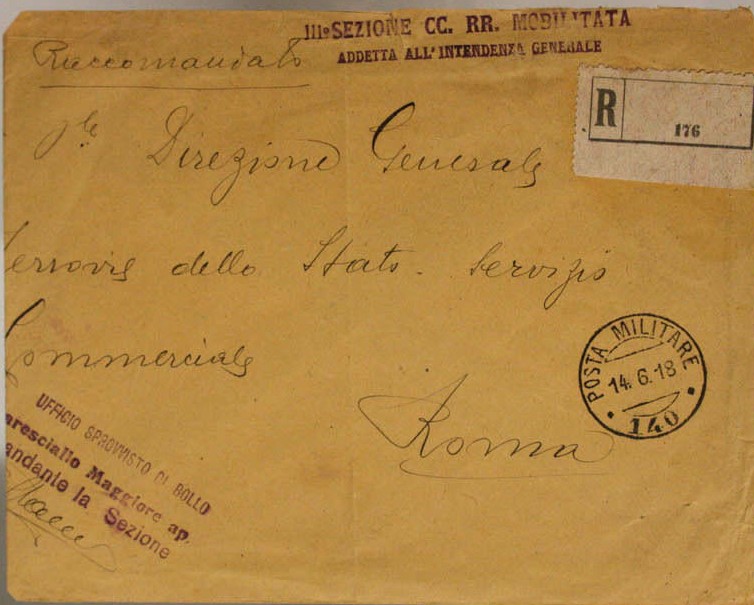 IIIa SEZIONE CC. RR. MOBILITATA
ADDETTA ALL'INTENDENZA GENERALE
Raccomandato
R
176
Direzione Generale
Ferrovie dello Stato - Servizio
Commerciale
Roma
POSTA MILITARE
14.6.18
140
UFFICIO SPROVVISTO DI BOLLO
aresciallo Maggiore ap.
andante la Sezione